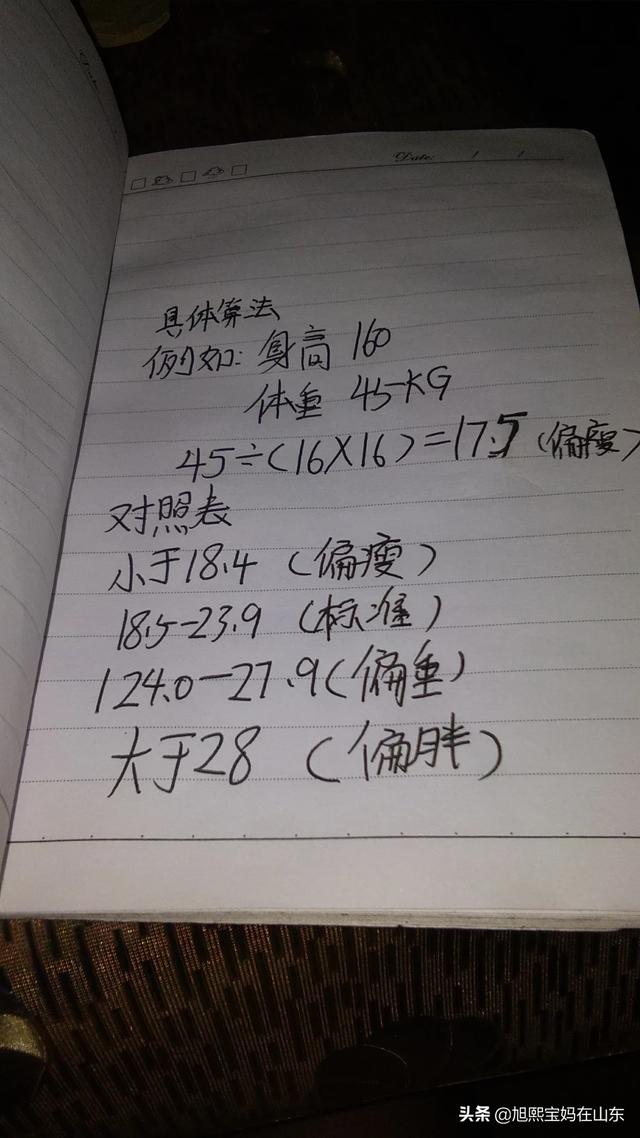 Date: / /
具体算法
例如: 身高 160
体重 45KG
45÷(16×16)=17.5 (偏瘦)
对照表
小于18.4 (偏瘦)
18.5-23.9 (标准)
124.0-27.9(偏重)
大于28 (偏胖)
头条 @旭熙宝妈在山东